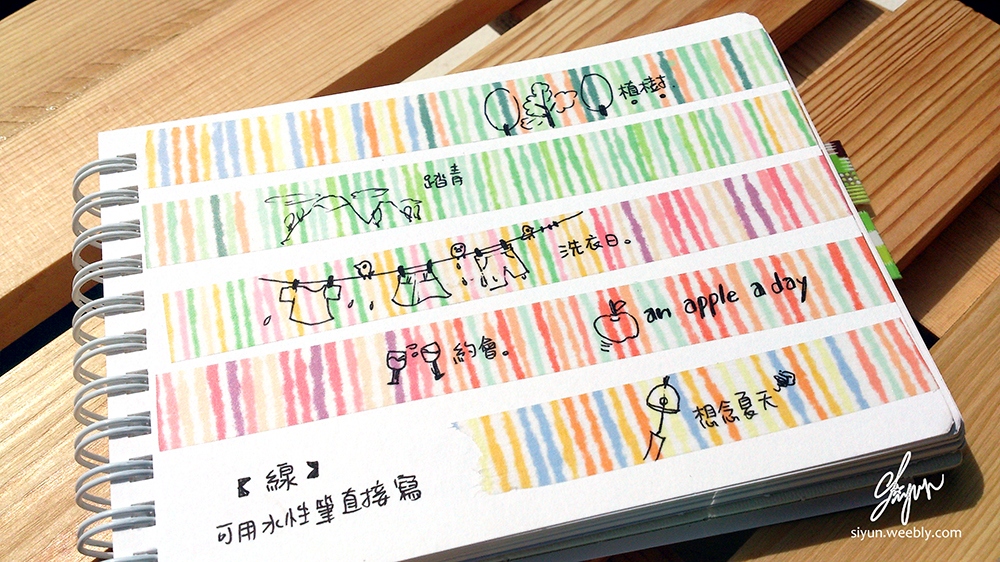 植樹.
踏青
洗衣日。
an apple a day
約會。
想念夏天
【線】
可用水性筆直接寫
Siyun
siyun.weebly.com